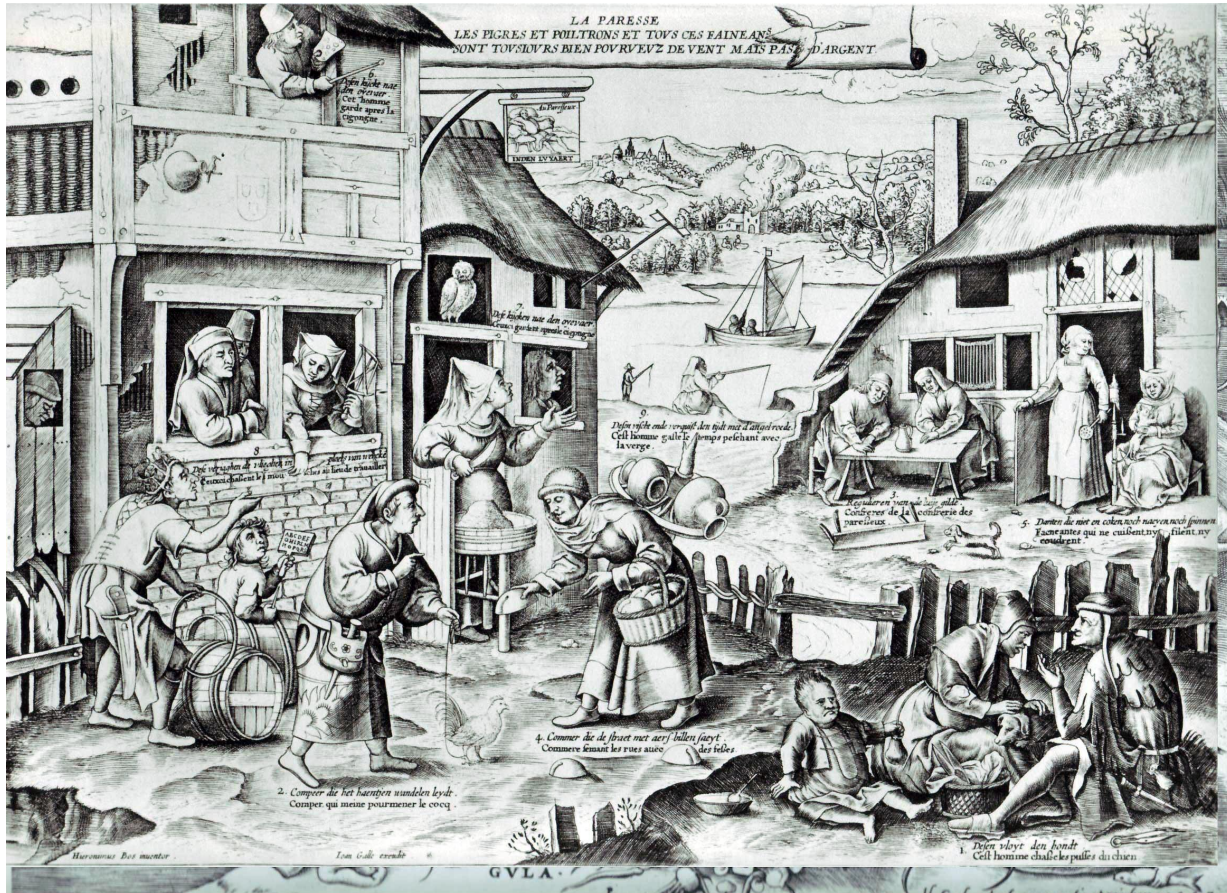 LA PARESSE
LES PIGRES ET POILTRONS ET TOVS CES FAINEANS
SONT TOVSIOVRS BIEN POVRVEVZ DE VENT MAIS PAS D'ARGENT
6.
Desen kijcke nae
den oyevaer.
Cet homme
garde apres la
cigongne.
Au Paresseux
INDEN LVYAERT
7.
Dese kijcken nae den oyevaer
gardent apres le cigongne
8
Dese veriaghen die vlieghen in plaets van wercke
Ceuxcy chassent les mou ches au lieu de travailler
ABCDEF
GHIKLM
NOPQRS
9.
Desen vischt ende verquist den tijdt met d'angelroede.
C'est homme gaste le temps peschant avec
la verge.
3.
van de luye gilde
Confreres de la confrerie des
paresseux
5. Danten die niet en coken, noch naeyen, noch spinnen
Faineantes qui ne cuisent, ny filent, ny
coudrent.
4. Commer die de straet met aers billen saeyt.
Commere semant les rues avec des fesses.
2. Compeer die het haentjen wandelen leydt.
Comper qui meine pourmener le cocq.
1. Desen vloyt den hondt
C'est homme chasse les pusses du chien
Hieronimus Bos inventor
Ioan Galle exendit
GVLA.